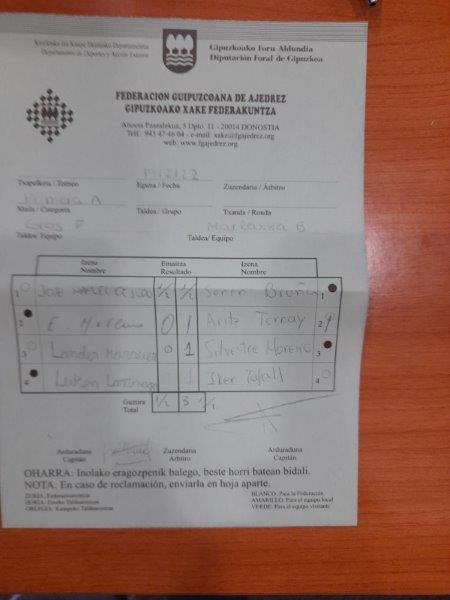 Kirol eta Kanpo Ekintzako Departamentua
Departamento de Deportes y Acción Exterior
Gipuzkoako Foru Aldundia
Diputación Foral de Gipuzkoa
FEDERACION GUIPUZCOANA DE AJEDREZ
GIPUZKOAKO XAKE FEDERAKUNTZA
Anoeta Pasealekua, 5 Dpto. 11 - 20014 DONOSTIA
Telf. 943 47 46 04 - e-mail: xake@fgajedrez.org
web: www.fgajedrez.org
Txapelketa / Torneo Eguna / Fecha Zuzendaria / Árbitro
A
Maila / Categoría Taldea / Grupo Txanda / Ronda
Gros F B
Taldea/ Equipo Taldea/ Equipo
Izena Emaitza Izena
Nombre Resultado Nombre
1 JOSE 1/2 1/2 1
2 E. Moreno 0 1 Aritz 2
3 Lander 0 1 Silvestre Moreno 3
4 1 Iker 4
Guztira 1/2 3 1/2
Total
Arduraduna Zuzendaria Arduraduna
Capitán Árbitro Capitán
OHARRA: Inolako eragozpenik balego, beste horri batean bidali.
NOTA: En caso de reclamación, enviarla en hoja aparte.
ZURIA: Federazioarentzat BLANCO: Para la Federación
HORIA: Etxeko Taldearentzat AMARILLO: Para el equipo local
ORLEGIA: Kanpoko Taldearentzat VERDE: Para el equipo visitante